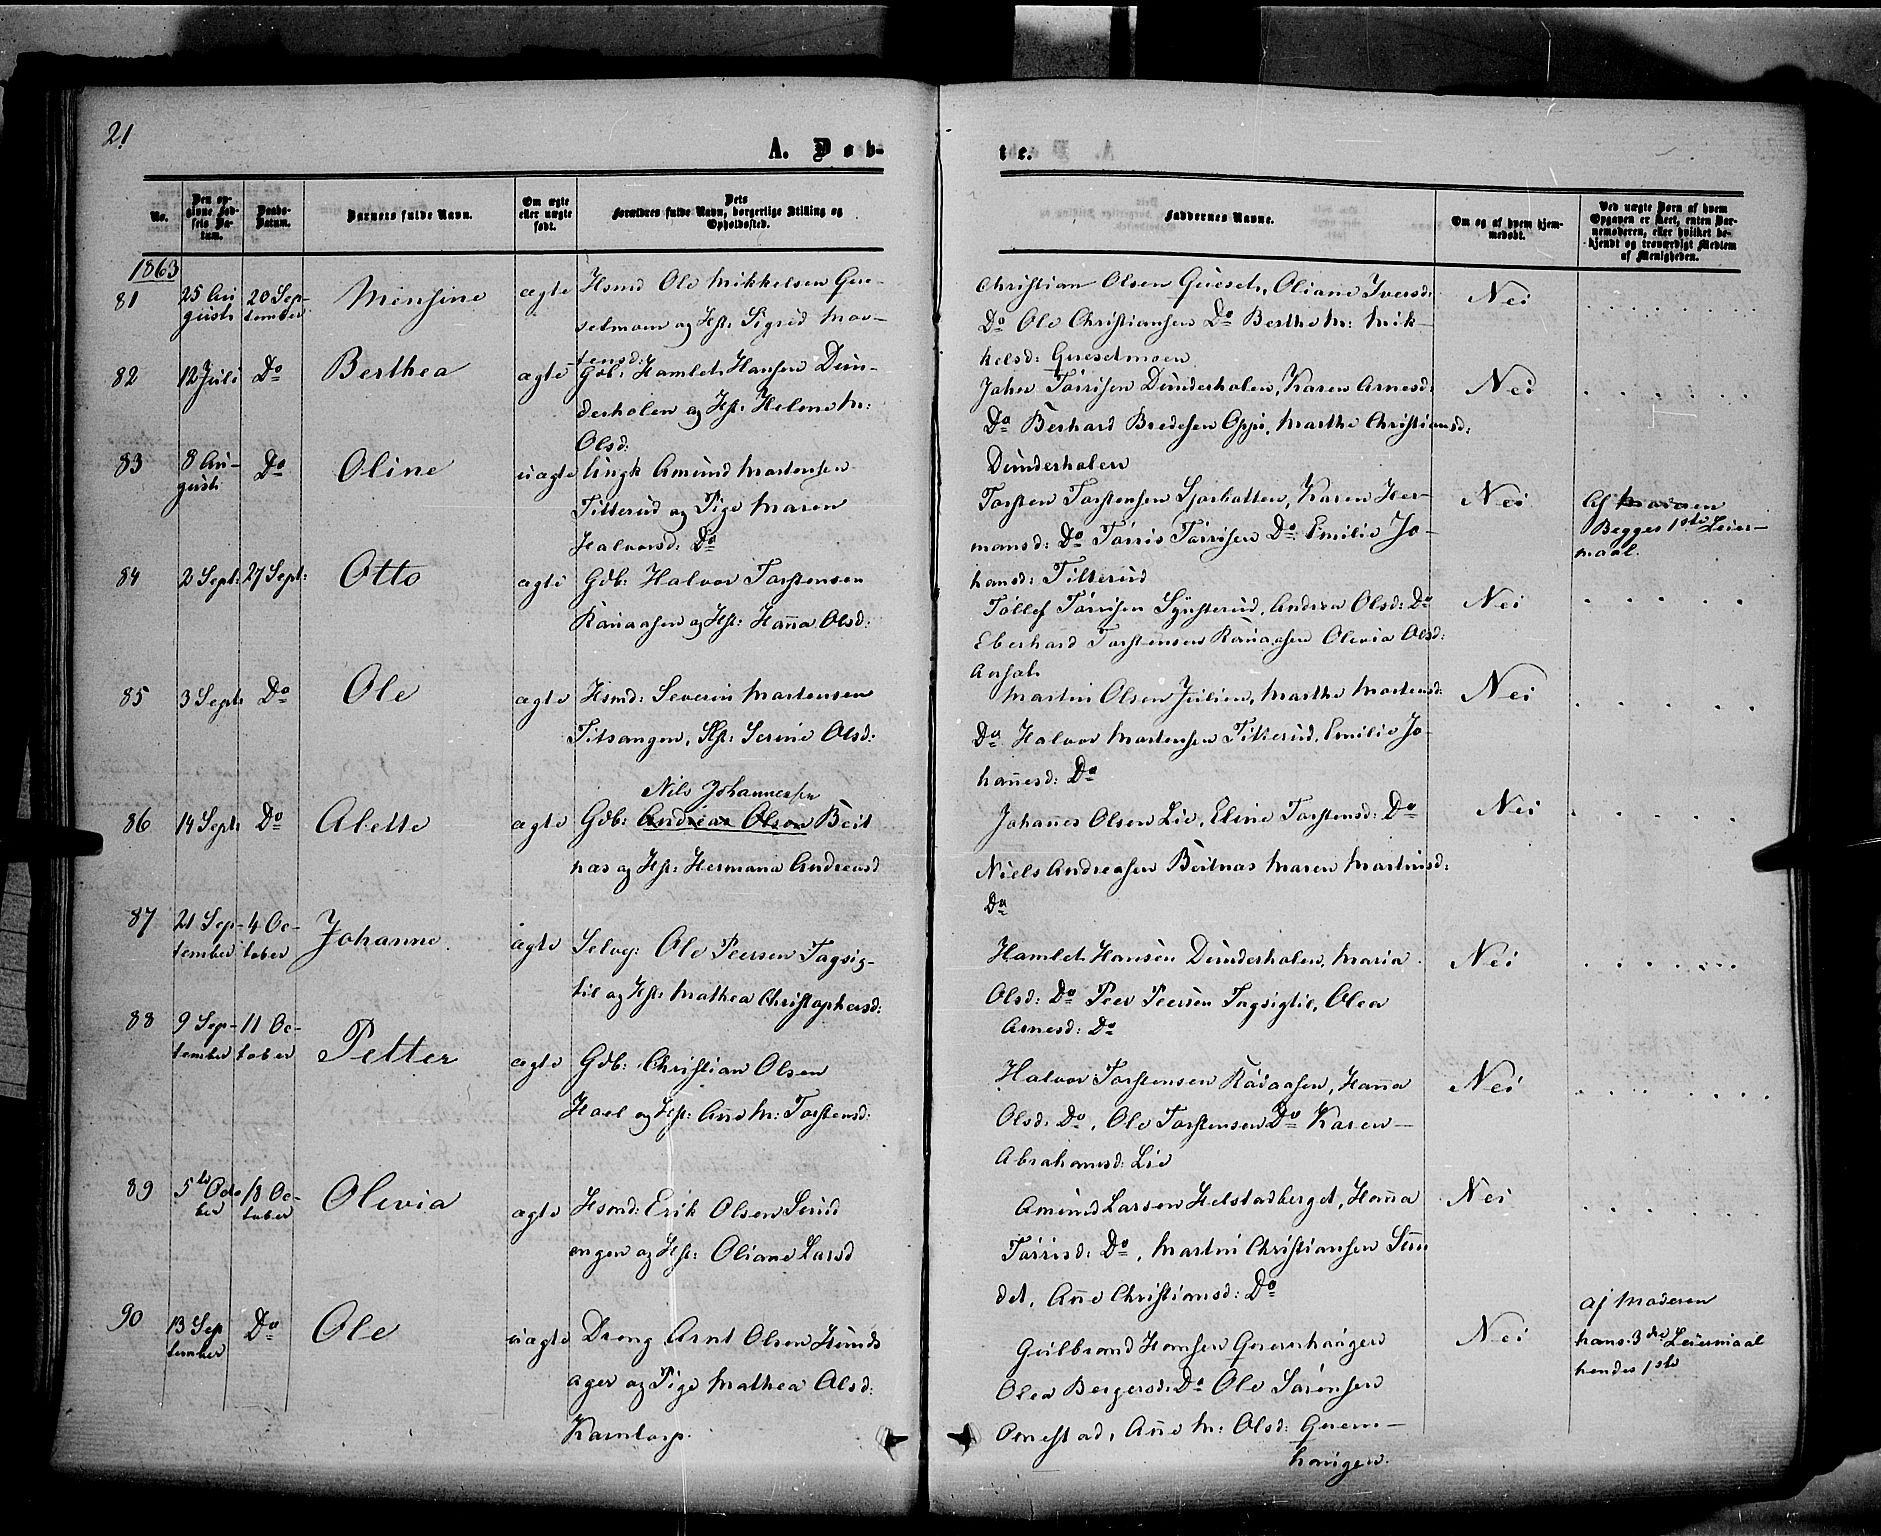 21
A. Døb-
te.
No.
Den opgivne Fødsels Datum.
Daabs-Datum.
Barnets fulde Navn.
Om ægte eller uægte født.
Dets Forældres fulde Navn, borgerlige Stilling og Opholdssted.
Faddernes Navne.
Om og af hvem hjemmedøbt.
Ved uægte Børn af hvem Opgaven er skeet, enten Barnemoderen, eller hvilket bekjendt og troværdigt Medlem af Menigheden.
1863
81 25 Au- 20 Sep- Mensine ægte Hsmd Ole Mikkelsen
gust tember setmoen og Hst: Sigrid Mor-
tensd:
Christian Olsen Oliane Iversd:
Do Ole Christiansen Do Berthe M: Mik-
kelsd:
Nei
82 12 Juli Do Berthea ægte Gdb: Hamlet Hansen Dun-
derholen og Hst: Helene M:
Olsd:
Johan Tørrisen Dunderholen, Karen Arnesd:
Do Berhard Bredesen Opp, Marthe Christiansd:
Dunderholen
Nei
83 8 Au- Do Oline uægte Ungk Amund Mortensen
gust Titterud og Pige Maren
Halvorsd: Do
Torsten Torstensen Karen Her-
mansd: Do Tørris Tørrisen Do Emilie Jo-
hansd: Titterud
Nei
Af Moderen
Begges 1ste Leier-
maal.
84 2 Sept: 27 Sept: Otto ægte Gdb: Halvor Torstensen
Rauaasen og Hst: Hanna Olsd:
Tollef Tørrisen Andrea Olsd: Do
Eberhard Torstensen Rauaasen Olivia Olsd:
Nei
85 3 Sept: Do Ole ægte Hsmd: Severin Mortensen
Titsangen, Hst: Serine Olsd:
Martin Olsen Julien, Marthe Mortensd:
Do Halvor Mortensen Titterud, Emilie Jo-
hannesd: Do
Nei
Nils Johannesen
86 14 Sept: Do Alette ægte Gdb: Andreas Olsen Beit
næs og Hst: Hermana Andreasd
Johannes Olsen Lie, Eline Torstensd: Do
Niels Andreasen Beitnæs Maren Martinsd:
Do
Nei
87 21 Sep- 4 Oc- Johanne. ægte Selvej: Ole Peersen Fagsig-
tember tober til og Hst: Mathea Christophersd:
Hamlet Hansen Dunderholen, Maria
Olsd: Do Peer Peersen Fagsigtil, Olea
Arnesd: Do
Nei
88 9 Sep- 11 Oc- Petter ægte Gdb: Christian Olsen
tember tober Hoel og Hst: Anne M: Torstensd:
Halvor Torstensen Rauaasen, Hana
Olsd: Do, Ole Torstensen Do Karen
Abrahamsd: Lie
Nei
89 5te Octo 18 Oc- Olivia ægte Hsmd: Erik Olsen Serud
ber tober engen og Hst: Oliane Larsd
Amund Larsen Helstadberget, Hanna
Tørrisd: Do, Martin Christiansen Sun
det, Anne Christiansd: Do
Nei
90 13 Sep Do Ole uægte Dreng Arnt Olsen Hunds
tember ager og Pige Mathea Olsd:
Korntorp.
Gulbrand Hansen Qvernhaugen
Olea Bergersd: Do Ole Sørensen
Onnestad, Anne M: Olsd: Qvern-
haugen.
Nei
Af Moderen
hans 3die Leiermaal
hendes 1ste